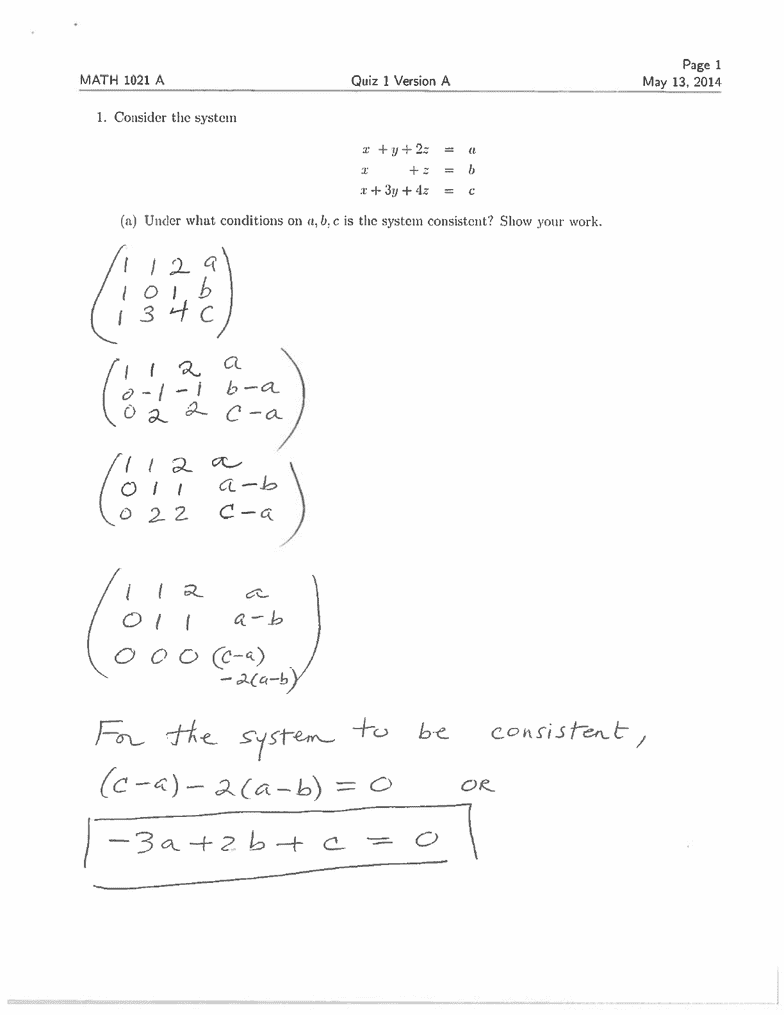 Page 1
MATH 1021 A Quiz 1 Version A May 13, 2014
1. Consider the system
x + y + 2z = a
x + z = b
x + 3y + 4z = c
(a) Under what conditions on a, b, c is the system consistent? Show your work.
1 1 2 a
1 0 1 b
1 3 4 c
1 1 2 a
0 -1 -1 b-a
0 2 2 c-a
1 1 2 a
0 1 1 a-b
0 2 2 c-a
1 1 2 a
0 1 1 a-b
0 0 0 (c-a)
-2(a-b)
For the system to be consistent,
(c-a)-2(a-b)=0 OR
-3a+2b+c=0